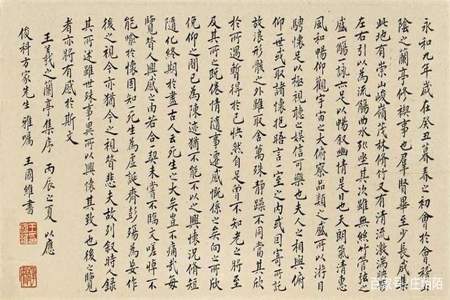 永和九年歲在癸丑暮春之初會於會稽山
陰之蘭亭脩禊事也羣賢畢至少長咸集
此地有崇山峻領茂林脩竹又有清流激湍暎帶
左右引以為流觴曲水列坐其次雖無絲竹管弦之
盛一觴一詠亦足以暢敘幽情是日也天朗氣清惠
風和暢仰觀宇宙之大俯察品類之盛所以遊目
騁懷足以極視聽之娛信可樂也夫人之相與俯
仰一世或取諸懷抱悟言一室之內或因寄所託
放浪形骸之外雖趣舍萬殊靜躁不同當其欣
於所遇暫得於己快然自足不知老之將至
及其所之既倦情隨事遷感慨係之矣向之所欣
俛仰之間已為陳迹猶不能不以之興懷況脩短
隨化終期於盡古人云死生亦大矣豈不痛哉每
覽昔人興感之由若合一契未嘗不臨文嗟悼不
能喻於懷固知一死生為虛誕齊彭殤為妄作
後之視今亦猶今之視昔悲夫故列敘時人錄
其所述雖世殊事異所以興懷其致一也後之覽
者亦將有感於斯文
王羲之蘭亭集序 丙辰之夏 以應
俊科方家先生雅屬 王國維書